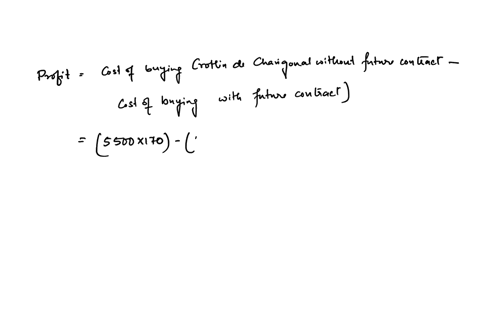 Profit = Cost of buying Crottin de Chavignal without future contract -
Cost of buying with future contract)
= (5500x170) - (